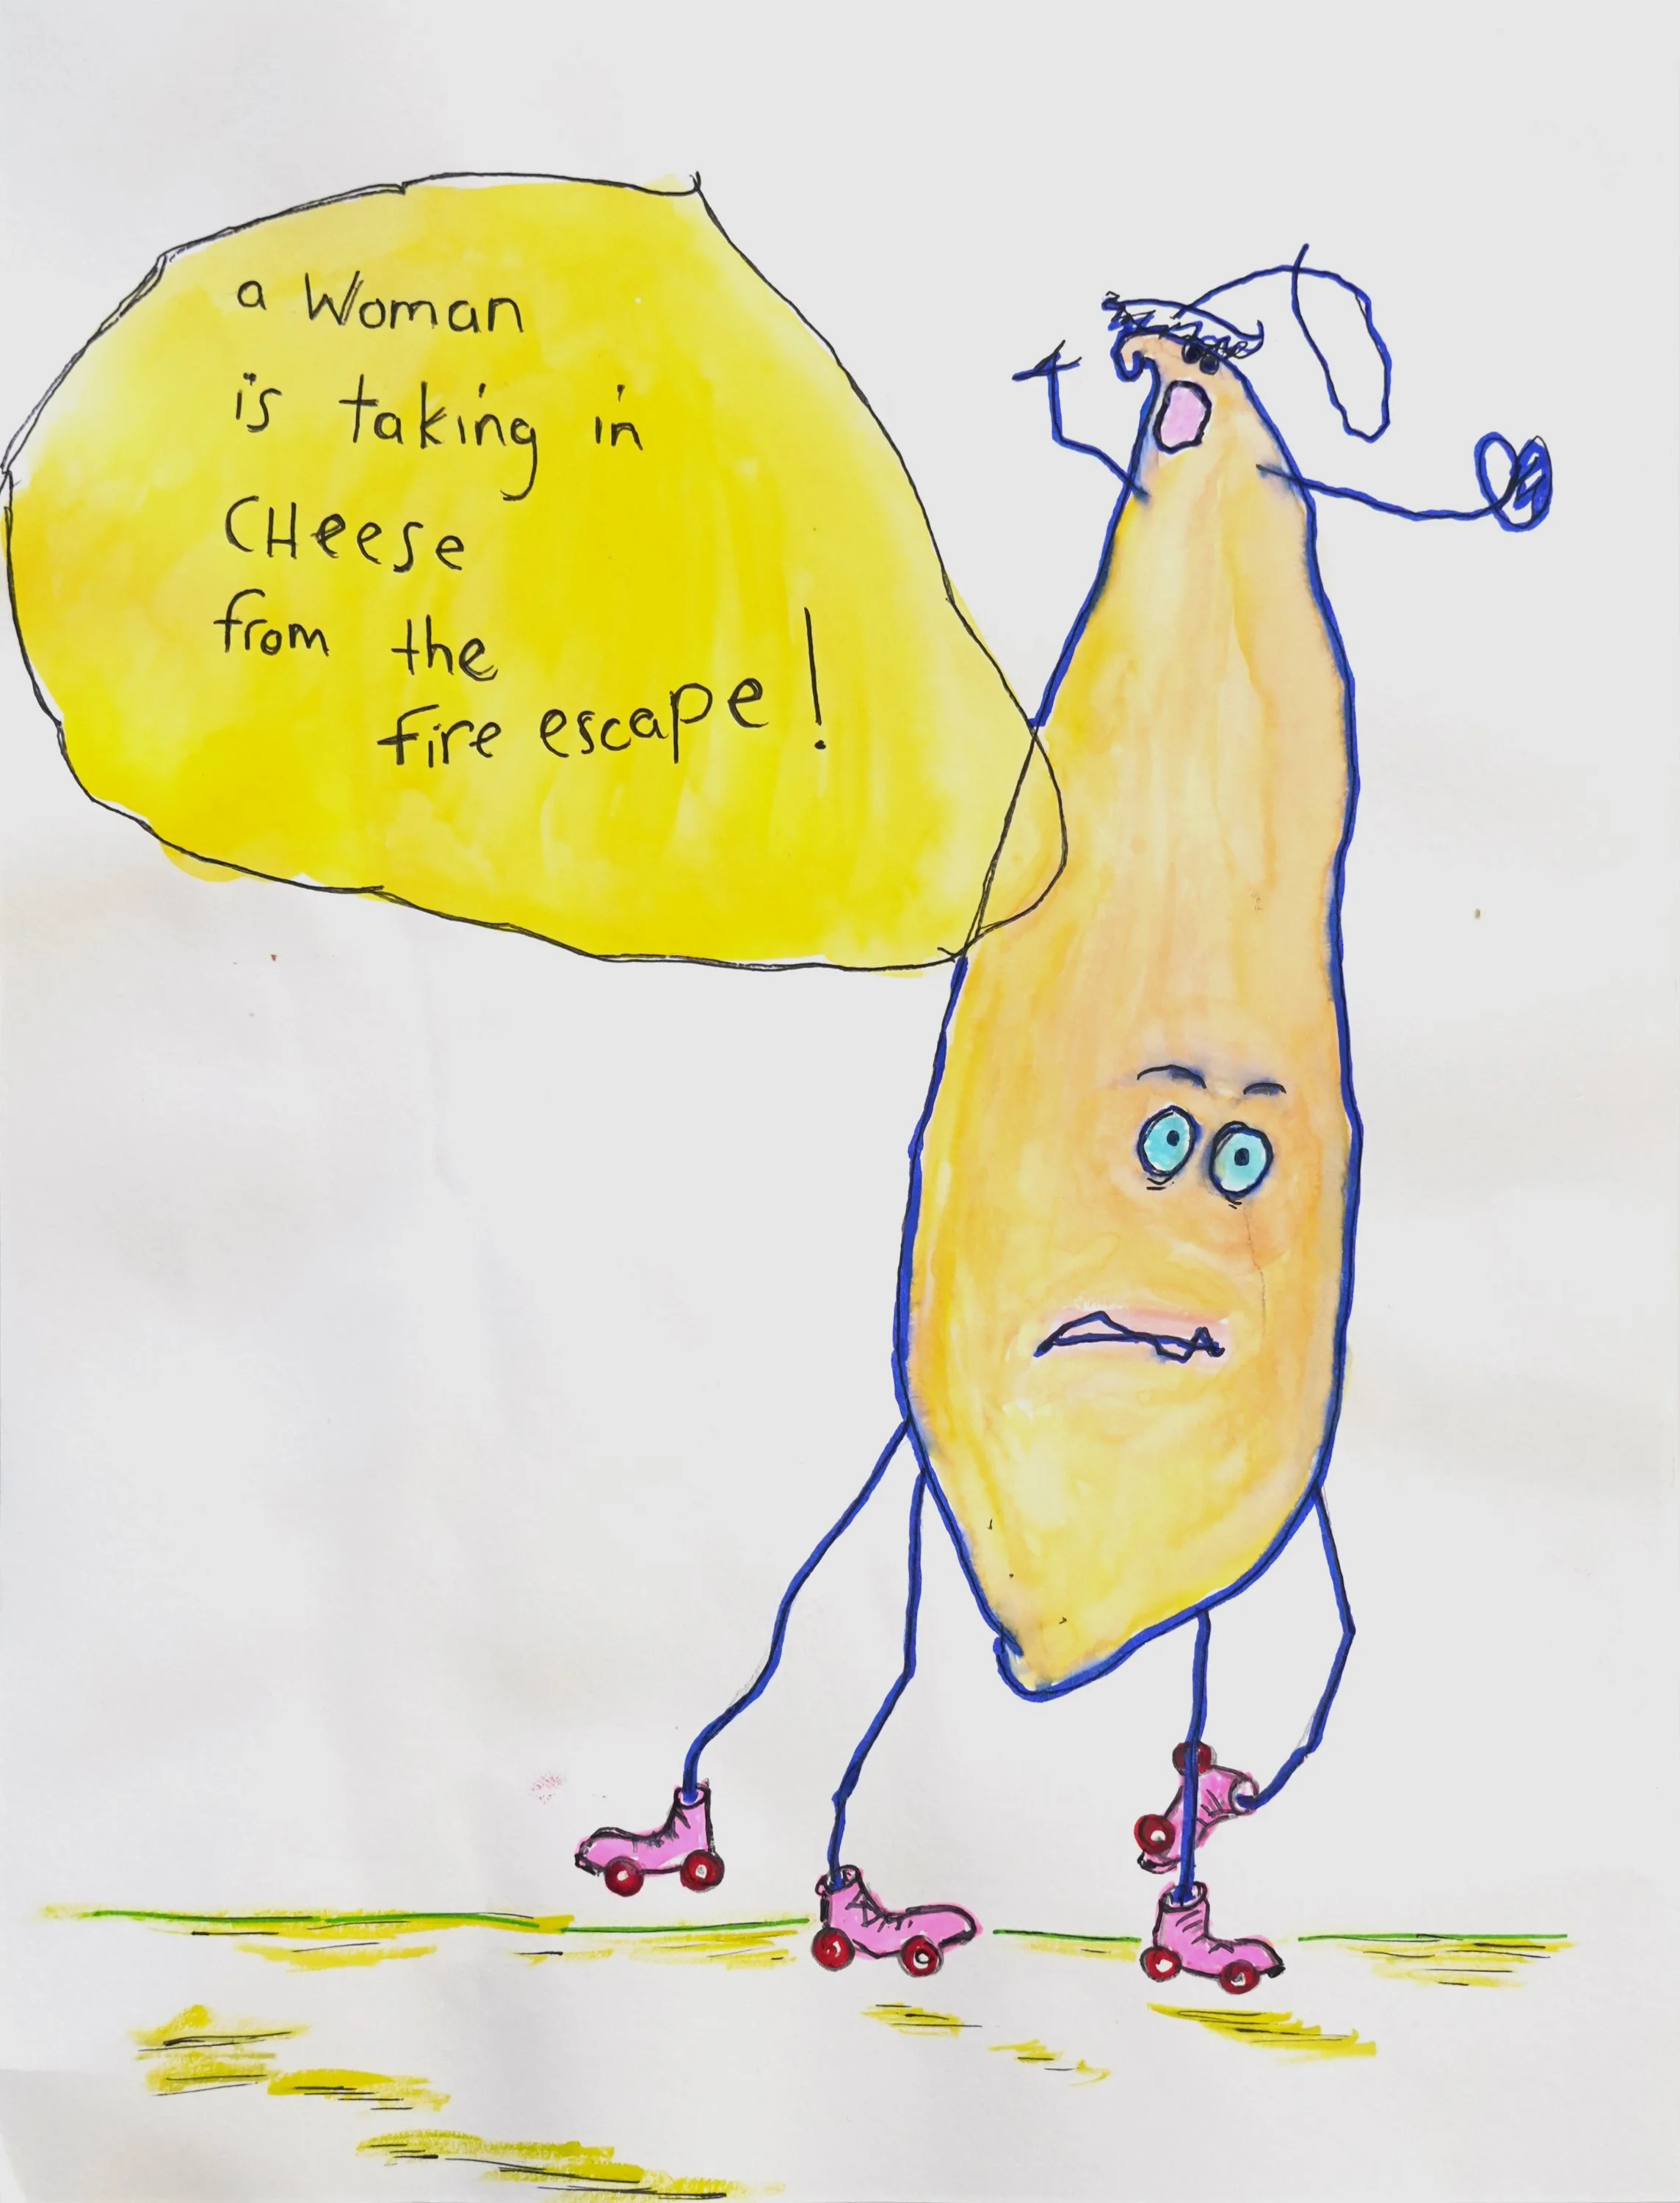 a Woman
is taking in
CHeese
from the
fire escape!